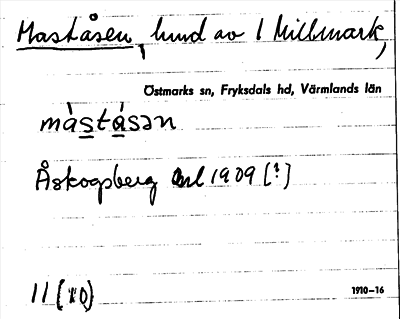 Maståsen, hund av 1 Millmark,
Östmarks sn, Fryksdals hd, Värmlands län
màstásən
Åskogsberg enl 1909 [?]
11 (10)
1910–16